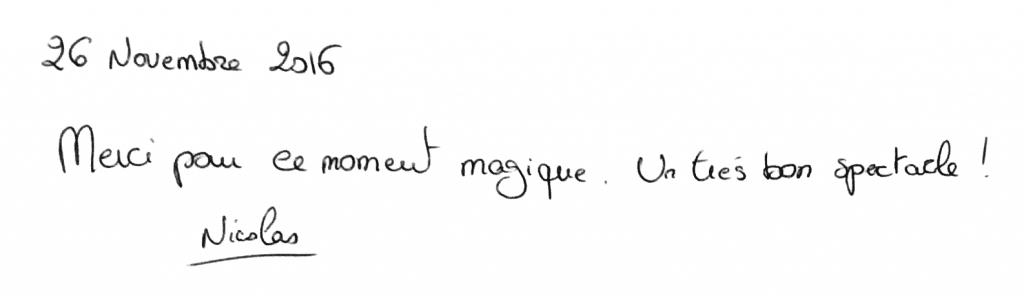 26 Novembre 2016
Merci pour ce moment magique. Un très bon spectacle !
Nicolas